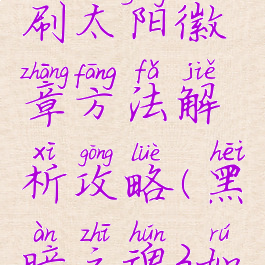 刷太阳徽
zhāng fāng fǎ jiě
章方法解
xī gōng lüè hēi
析攻略(黑
àn zhī hún rú
暗之魂3如